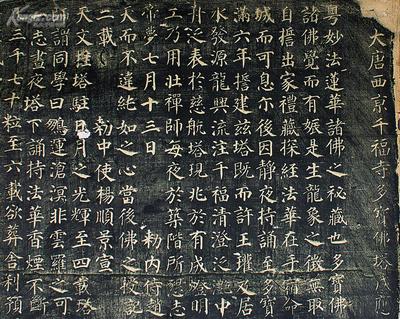 大唐西京千福寺多寶佛塔感應
粤妙法蓮華諸佛之秘藏也多寶佛
諸佛覺而有娠是生龍象之徵無取
自誓出家禮藏探經法華在手宿命
城而可息尒後因靜夜持誦至多寶
滿六年誓建茲塔既而許王瓘及居
水發源龍興流注千福清澄泛灧中
舟泛表於慈航塔現兆於有成燈明
工乃用壯禪師每夜於築階所懇志
帝夢七月十三日 勑內侍趙
天而不違純如之心當後佛之授記
二載 勑中使楊順景宣
天文掛塔駐日月之光輝至四載塔
謂同學曰鵬運滄溟非雲羅之可
志晝夜塔下誦持法華香煙不斷
三千七十粒至六載欲葬舍利預